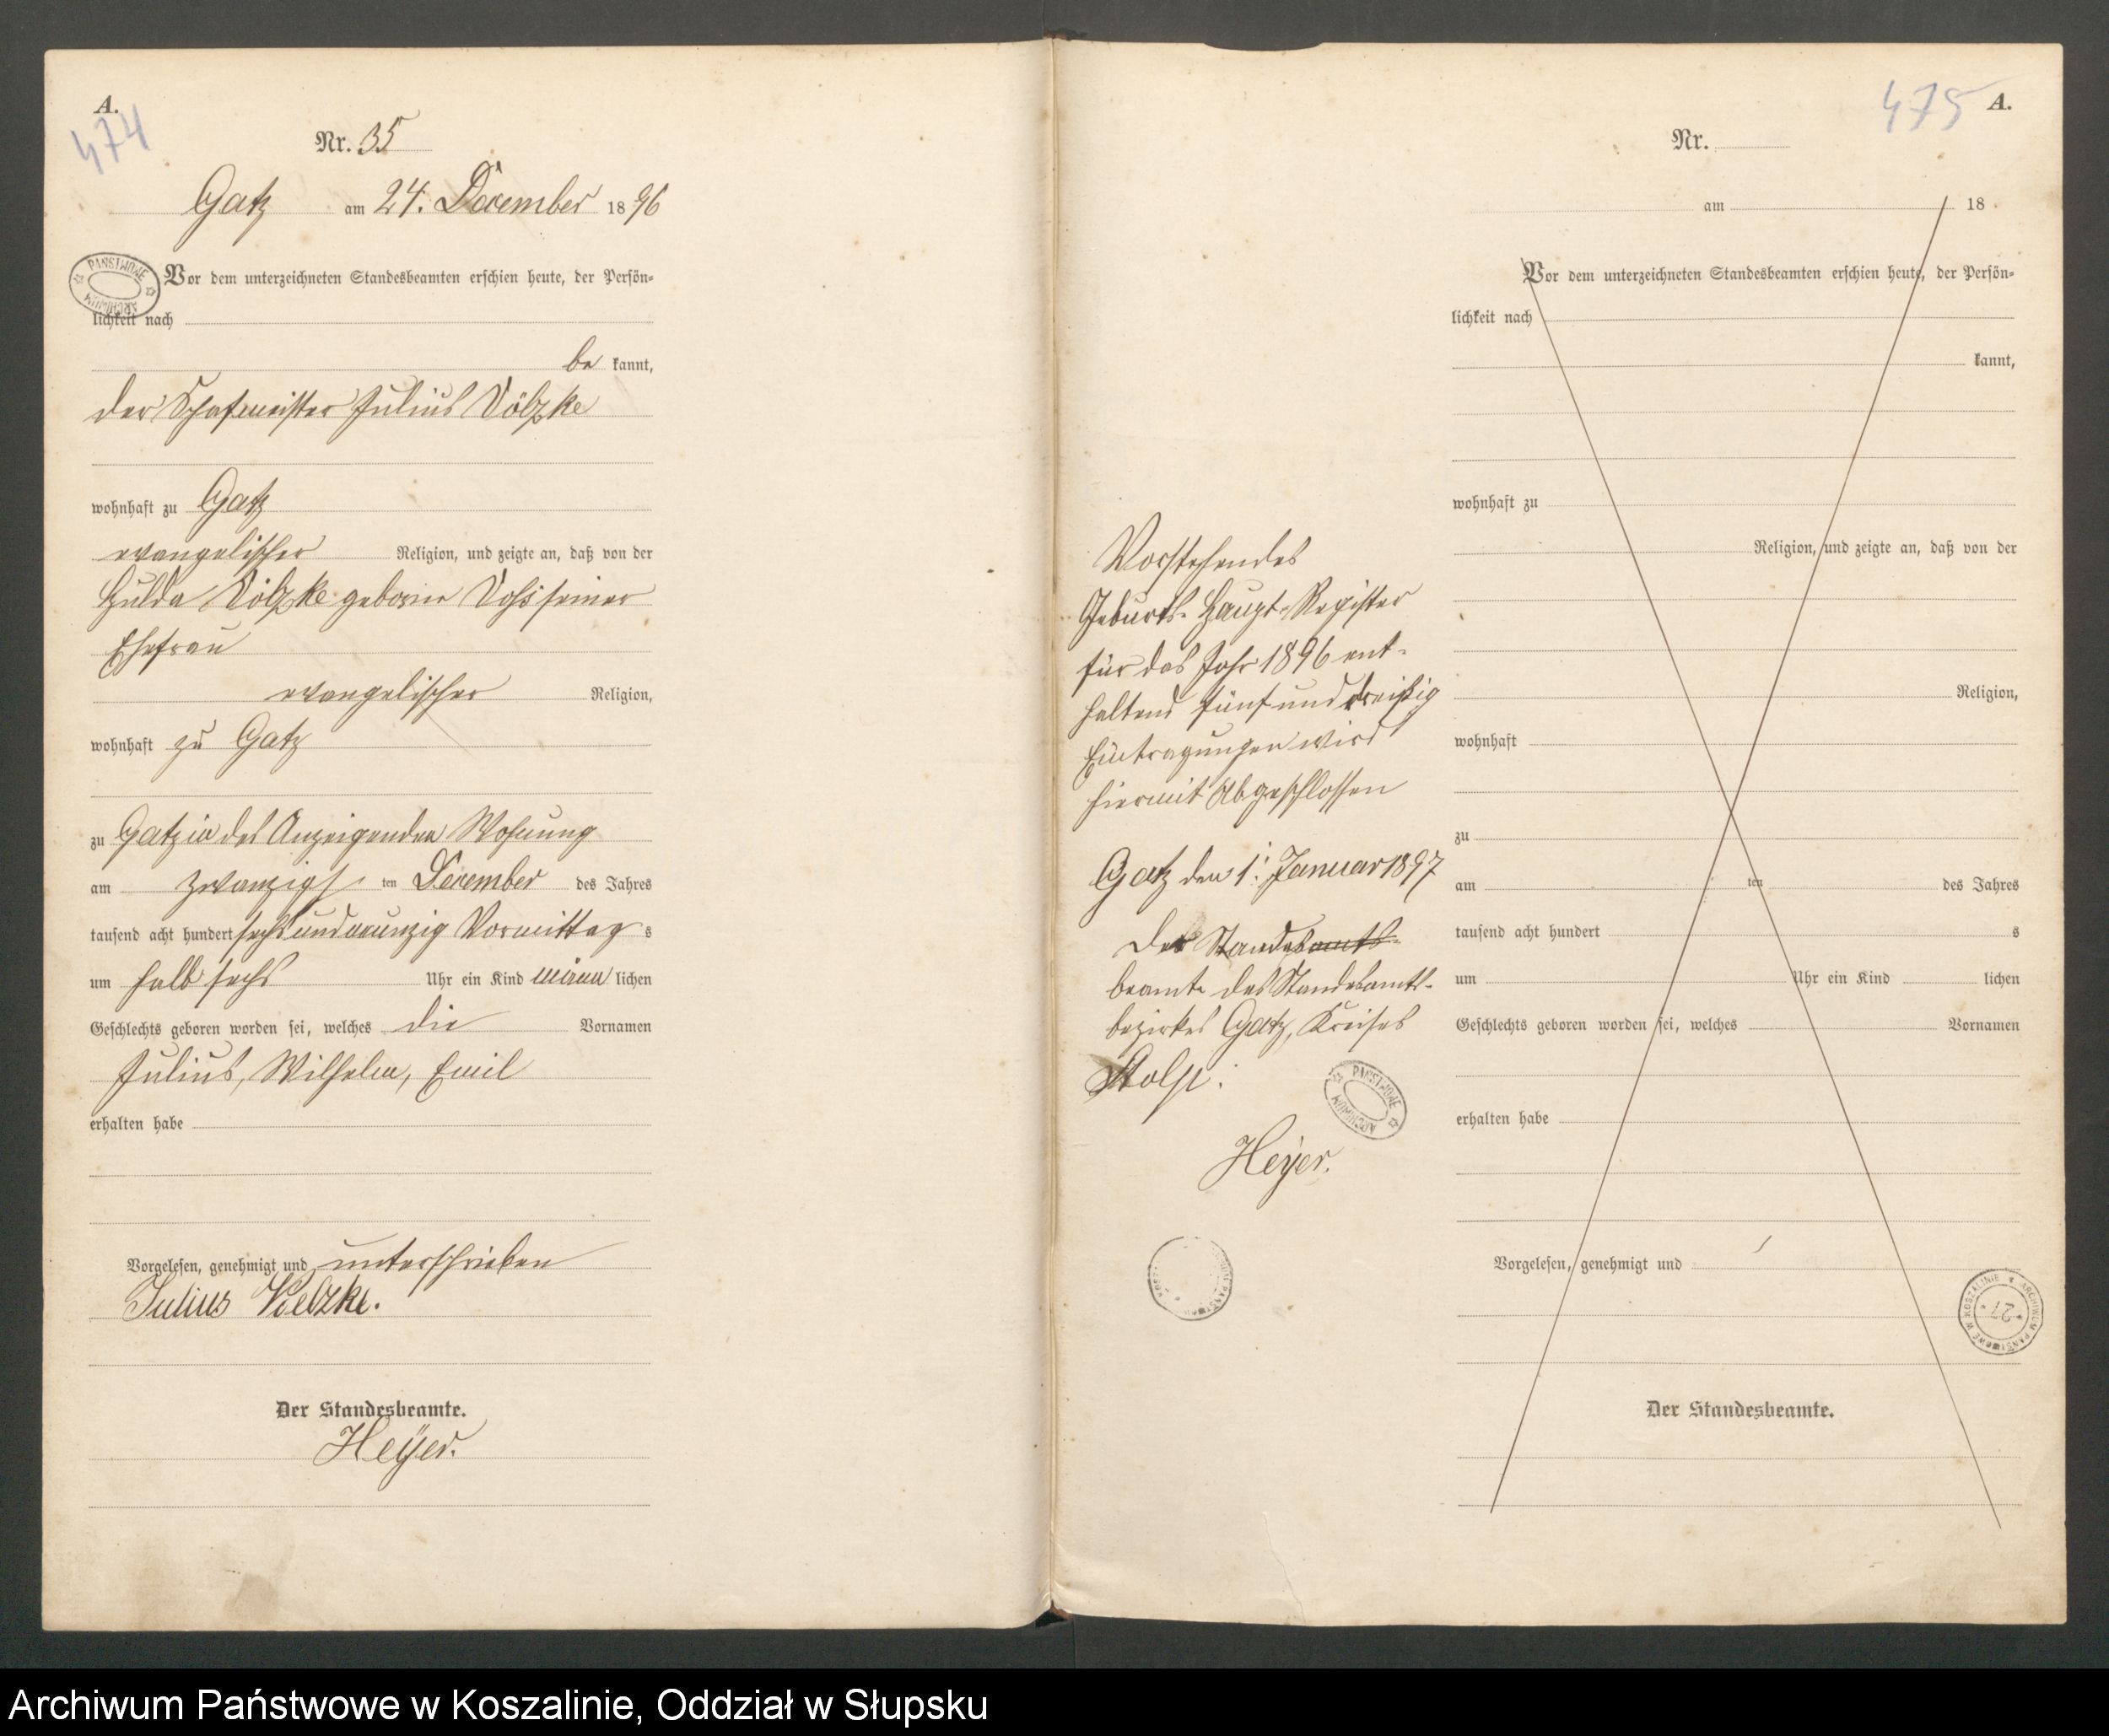 A.
474
Nr. 35
Gatz am 24. December 1896
PAŃSTWOWE ARCHIWUM
Vor dem unterzeichneten Standesbeamten erschien heute, der Persön-
lichkeit nach
be kannt,
der Schafmeister Julius Völzke
wohnhaft zu Gatz
evangelischer Religion, und zeigte an, daß von der
Hulda Völzke geborne Voß seiner
Ehefrau
evangelischer Religion,
wohnhaft zu Gatz
zu Gatz in des Anzeigenden Wohnung
am zwanzigs ten December des Jahres
tausend acht hundert sechs und neunzig Vormittag s
um halb sechs Uhr ein Kind männ lichen
Geschlechts geboren worden sei, welches die Vornamen
Julius, Wilhelm, Emil
erhalten habe
Vorgelesen, genehmigt und unterschrieben
Julius Voelzke.
Der Standesbeamte.
Heyer.
Vorstehendes
Geburts-Haupt-Register
für das Jahr 1896 ent-
haltend fünf und dreißig
Eintragungen wird
hiermit Abgeschlossen
Gatz den 1. Januar 1897
Der Standesamts-
beamte des Standesamts-
bezirkes Gatz, Kreises
Stolp.
PAŃSTWOWE ARCHIWUM
Heyer.
475 A.
Nr.
am 18
Vor dem unterzeichneten Standesbeamten erschien heute, der Persön-
lichkeit nach
kannt,
wohnhaft zu
Religion, und zeigte an, daß von der
Religion,
wohnhaft
zu
am ten des Jahres
tausend acht hundert s
um Uhr ein Kind lichen
Geschlechts geboren worden sei, welches Vornamen
erhalten habe
Vorgelesen, genehmigt und
ARCHIWUM PAŃSTWOWE W KOSZALINIE
27
Der Standesbeamte.
Archiwum Państwowe w Koszalinie, Oddział w Słupsku